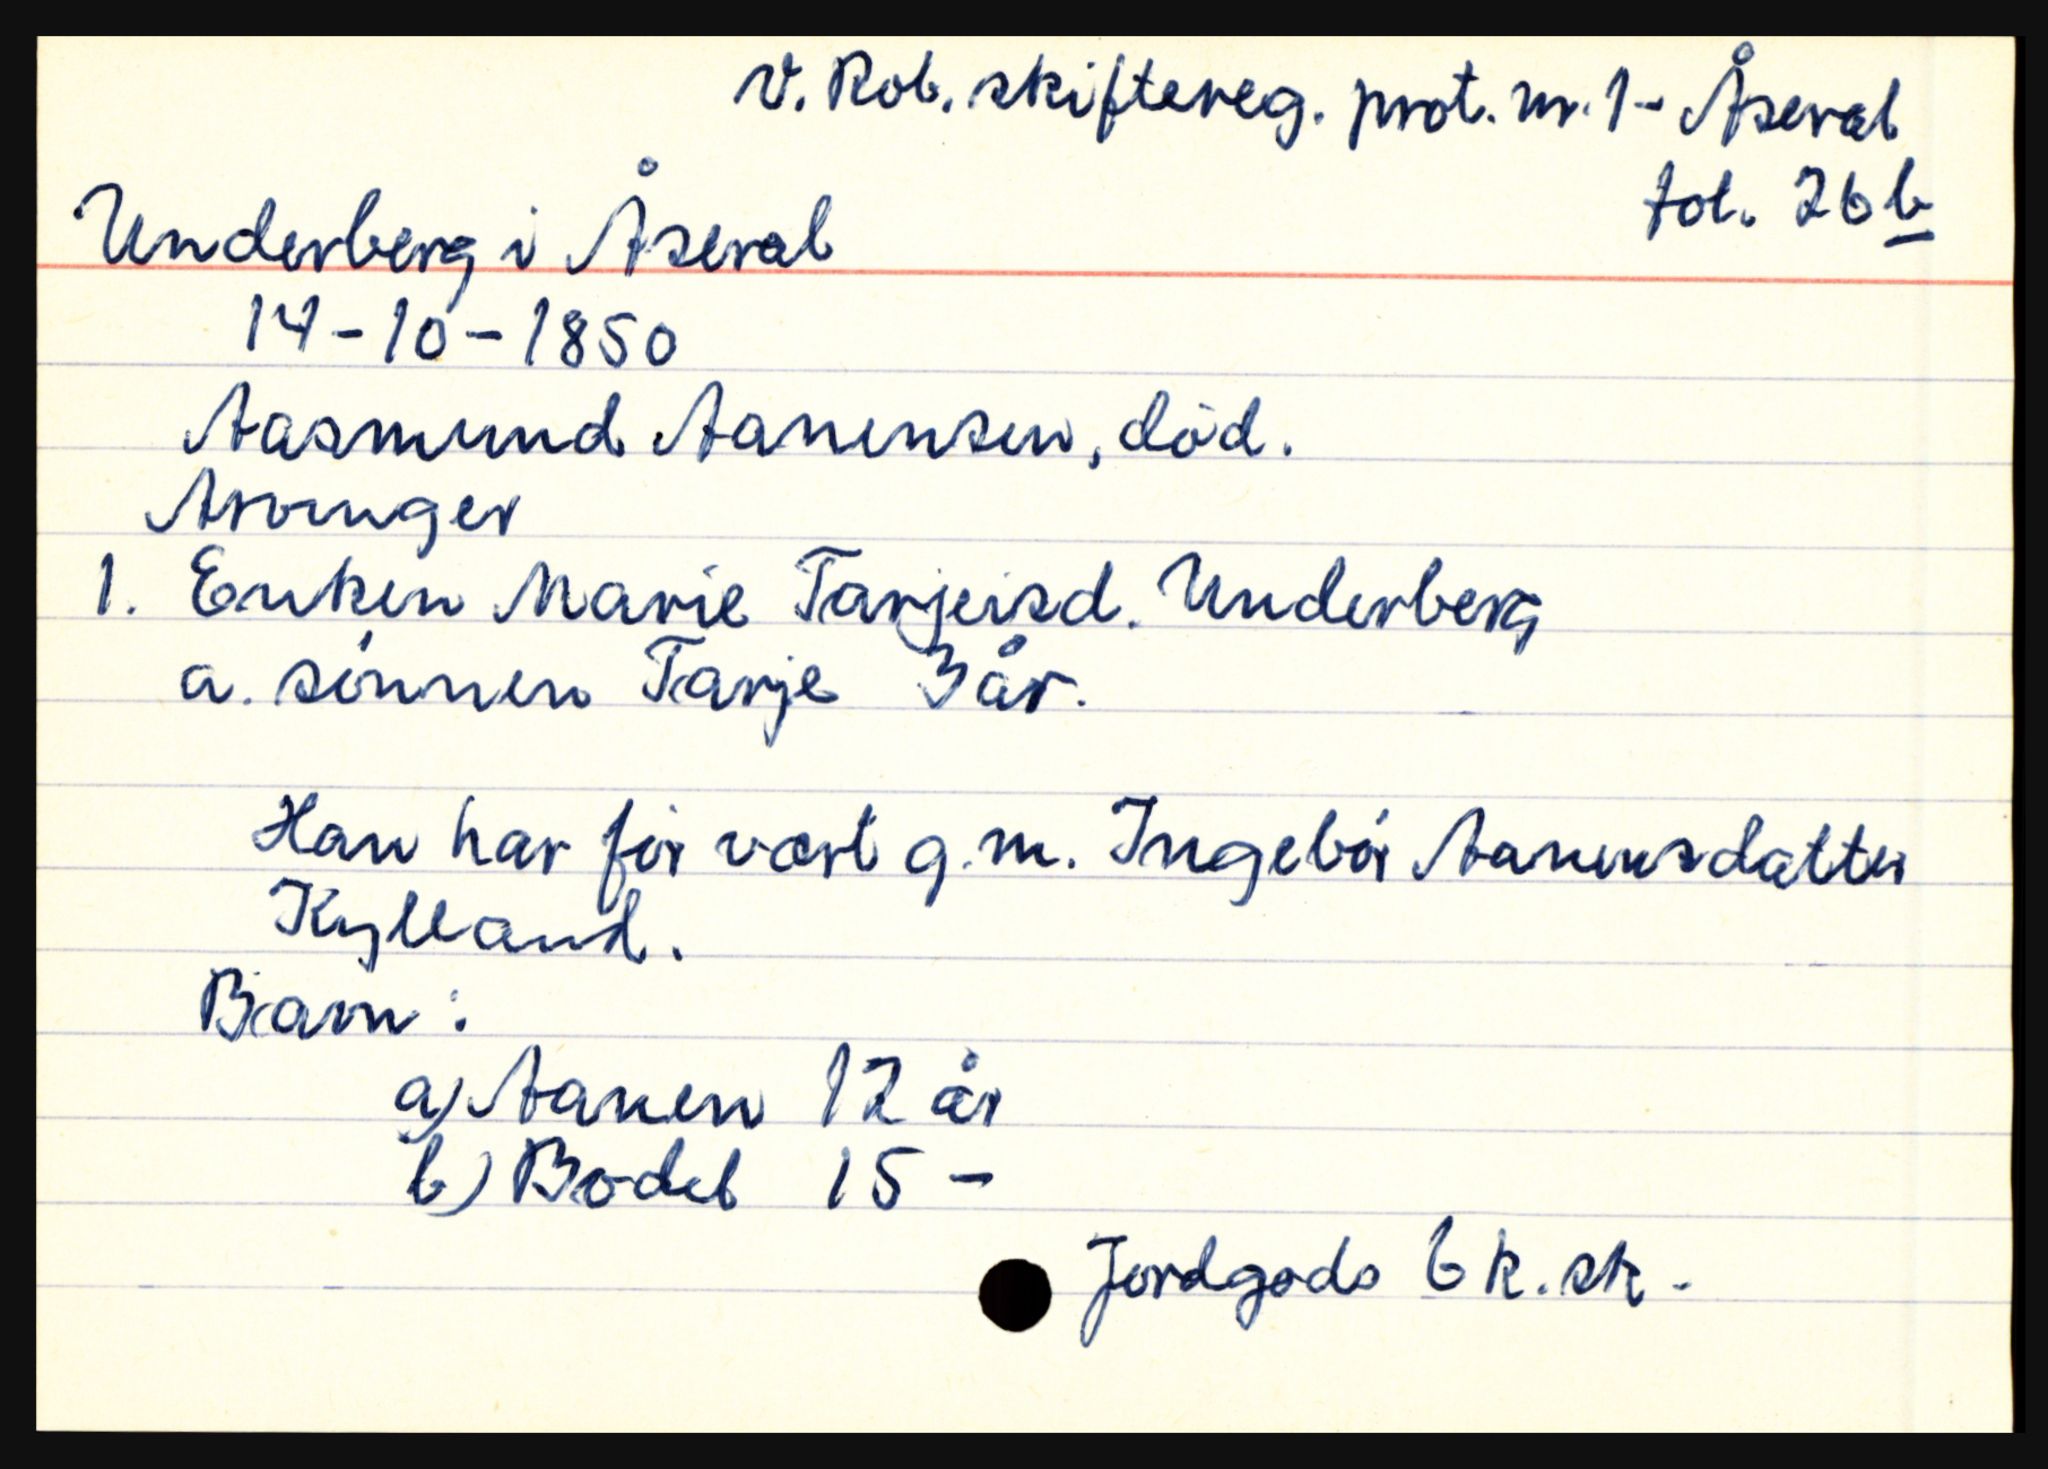 V. Rob. skiftereg. prot. nr. 1- Åseral
fol. 26b
Underberg i Åseral
14-10-1850
Aasmund Aanensen, död.
Arvinger
1. Enken Marie Tarjeisd. Underberg
a. sönnen Tarje 3 år.
Han har för vært g.m. Ingebör Aanensdatter
Kylland.
Barn:
a) Aanen 12 år
b) Bodel 15 -
Jordgods 6 k. sk.